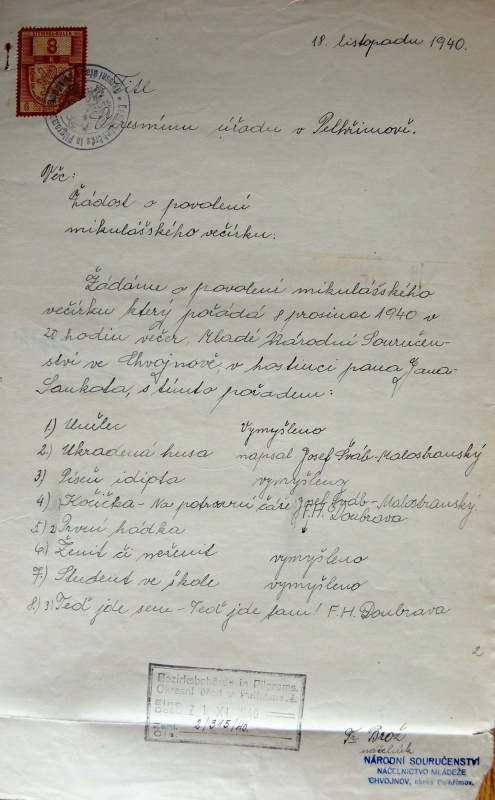 18. listopadu 1940.
8
K
Titl
Okresnímu úřadu v Pelhřimově.
Věc:
Žádost o povolení
mikulášského večírku.
Žádáme o povolení mikulášského
večírku který pořádá 8 prosince 1940 v
20 hodin večer, Mladé Národní Souručen-
ství ve Chvojnově, v hostinci pana Jana
, s tímto pořadem:
1.) Umělec Vymyšleno
2.) Ukradená husa napsal Josef Šváb-Malostranský
3) Píseň idiota vymyšleno
4) Kočička - Na čáře Josef Šváb-Malostranský
5) 2 První hádka F.H. Doubrava
6) Ženit či neženit vymyšleno
7) Student ve škole vymyšleno
8) 3) Teď jde sem - Teď jde tam! F.H. Doubrava
2
Bezirksbehörde in Pilgrams.
Okresní úřad v Pelhřimově.
21 XI 1940
Zahl
Čís. 2/315/40.
Fr. Brož
náčelník
NÁRODNÍ SOURUČENSTVÍ
NÁČELNICTVO MLÁDEŽE
CHVOJNOV, okres Pelhřimov.